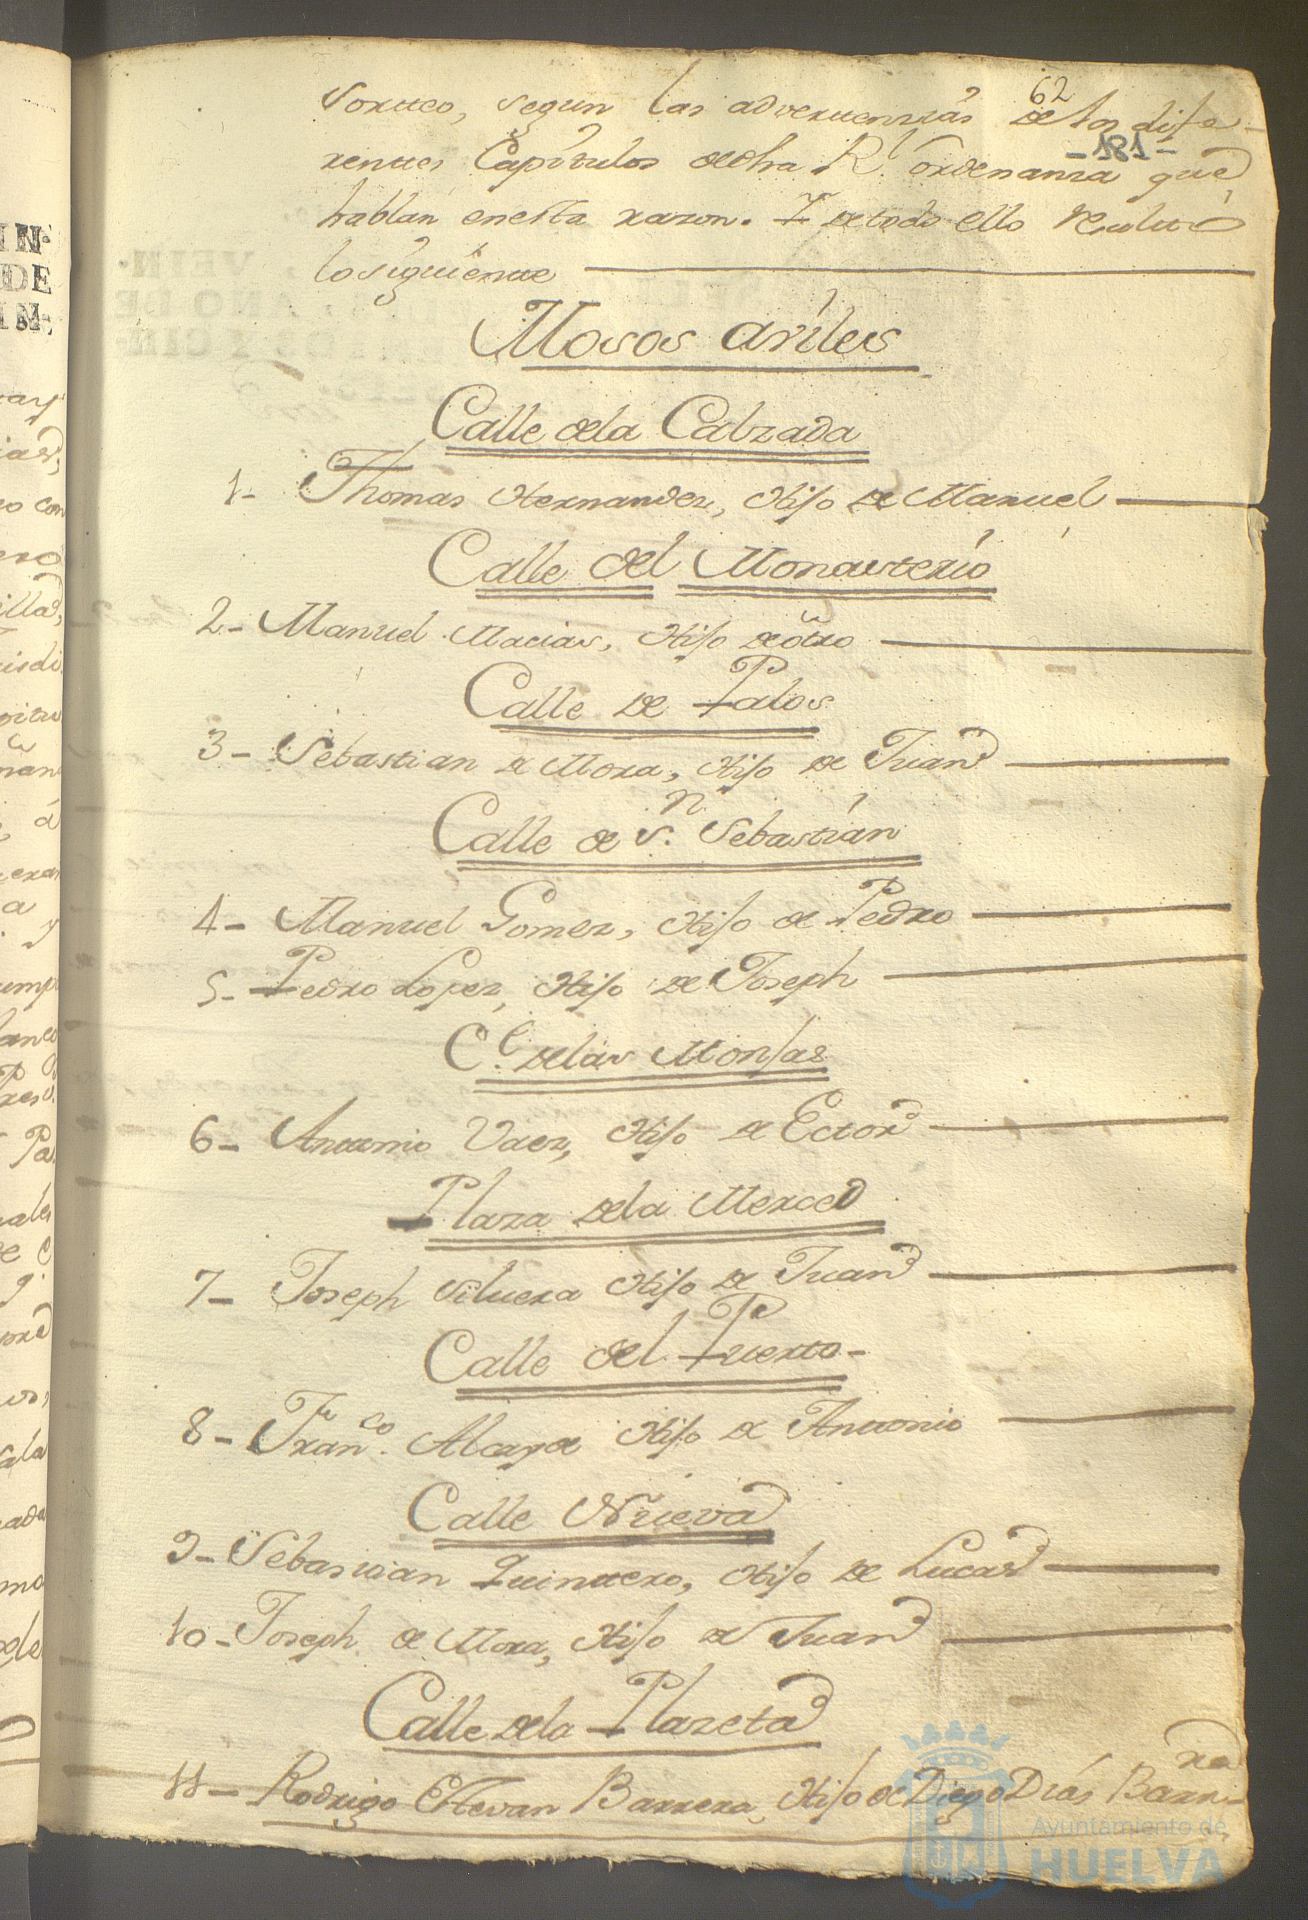 62
Sorteo, segun las advertensias de los dife-
-181-
rentes Capítulos dedha Rl. ordenanza que
hablan enesta razon. Y detodo ello resultó
lo siguiente
Mosos aviles
Calle dela Calzada
1- Thomas Hernandez, Hijo de Manuel
Calle del Monasterio
2- Manuel Macias, Hijo de otro
Calle de Palos
3- Sebastian de Mora, Hijo de Juan
Calle de Sn. Sebastián
4- Manuel Gomez, Hijo de Pedro
5- Pedro Lopez, Hijo de Joseph
Cl. delas Monjas
6- Antonio Vaez, Hijo de Ector
Plaza dela Merced
7- Joseph Silvera Hijo de Juan
Calle del Puerto-
8- Franco. Alcayde Hijo de Antonio
Calle Nueva
9- Sebastian Quintero, Hijo de Lucas
10- Joseph de Mora, Hijo de Juan
Calle dela Plazeta
11- Rodrigo Estevan Barrera, Hijo de Diego Días Barre-
ra
Ayuntamiento de
HUELVA